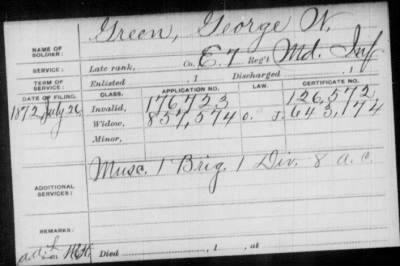 NAME OF SOLDIER: Green, George W.
SERVICE: Late rank, Co. E. 7 Reg't Md. Inf
TERM OF SERVICE: Enlisted , 1 Discharged
DATE OF FILING. CLASS. APPLICATION NO. LAW. CERTIFICATE NO.
1872, July 26 Invalid, 176,723 126,572
Widow, 857,574 643,174
Minor,
ADDITIONAL SERVICES: Musc. 1 Brig. 1 Div. 8 a.c.
REMARKS:
Died , 1 , at